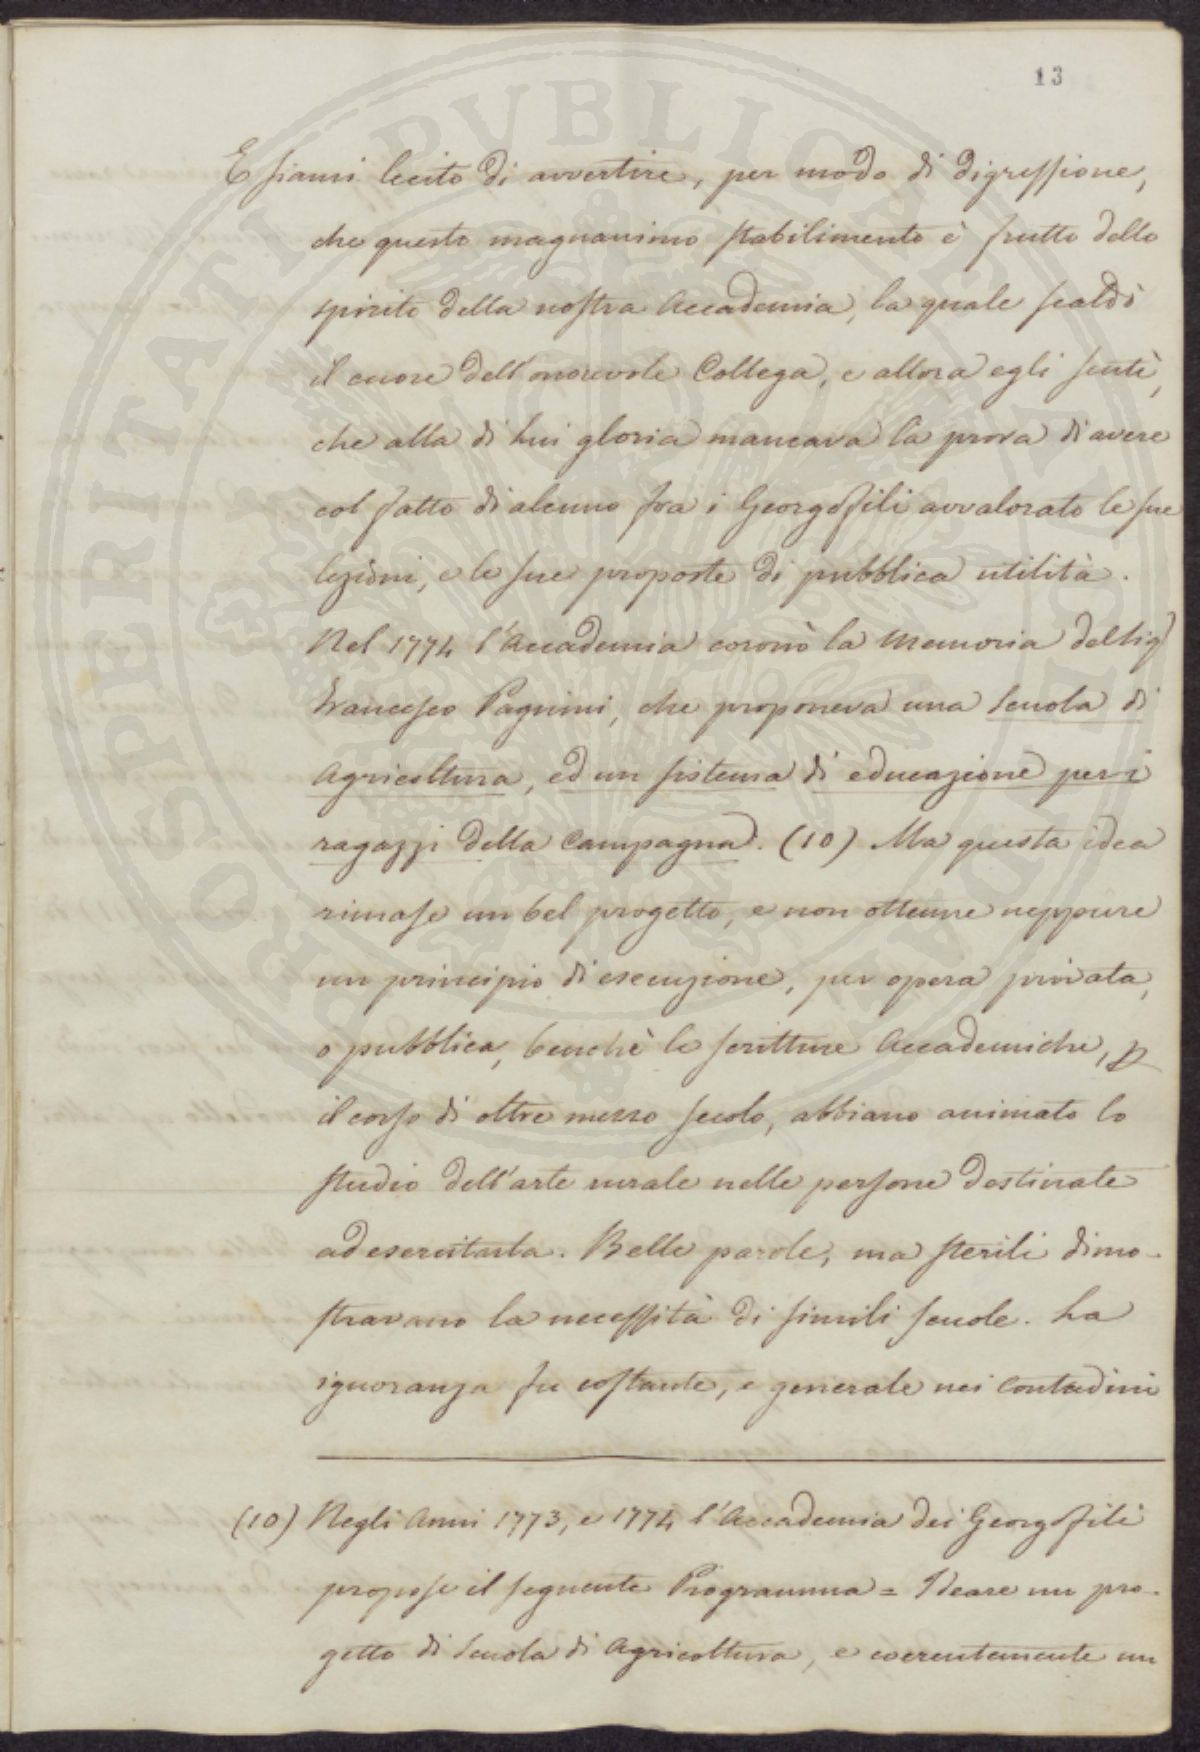 13
E siami lecito di avvertire, per modo di digressione,
che questo magnanimo stabilimento è frutto dello
spirito della nostra Accademia, la quale scaldò
il cuore dell'onorevole Collega, e allora egli sentì,
che alla di Lui gloria mancava la prova di avere
col fatto di alcuno fra i Georgofili avvalorato le sue
lezioni, e le sue proposte di pubblica utilità.
Nel 1774 l'Accademia coronò la Memoria del Sig.
Francesco Pagnini, che proponeva una Scuola di
Agricoltura, ed un sistema di educazione per i
ragazzi della Campagna. (10) Ma questa idea
rimase un bel progetto, e non ottenne neppure
un principio di esecuzione, per opera privata,
o pubblica, benchè le scritture Accademiche, p
il corso di oltre mezzo secolo, abbiano animato lo
studio dell'arte rurale nelle persone destinate
ad esercitarla. Belle parole, ma sterili dimo-
stravano la necessità di simili scuole. La
ignoranza fu costante, e generale nei Contadini
(10) Negli Anni 1773, e 1774 l'Accademia dei Georgofili
propose il seguente Programma = Ideare un pro-
getto di Scuola di Agricoltura, e coerentemente un
PROSPERITATI PUBLICAE AUGENDAE